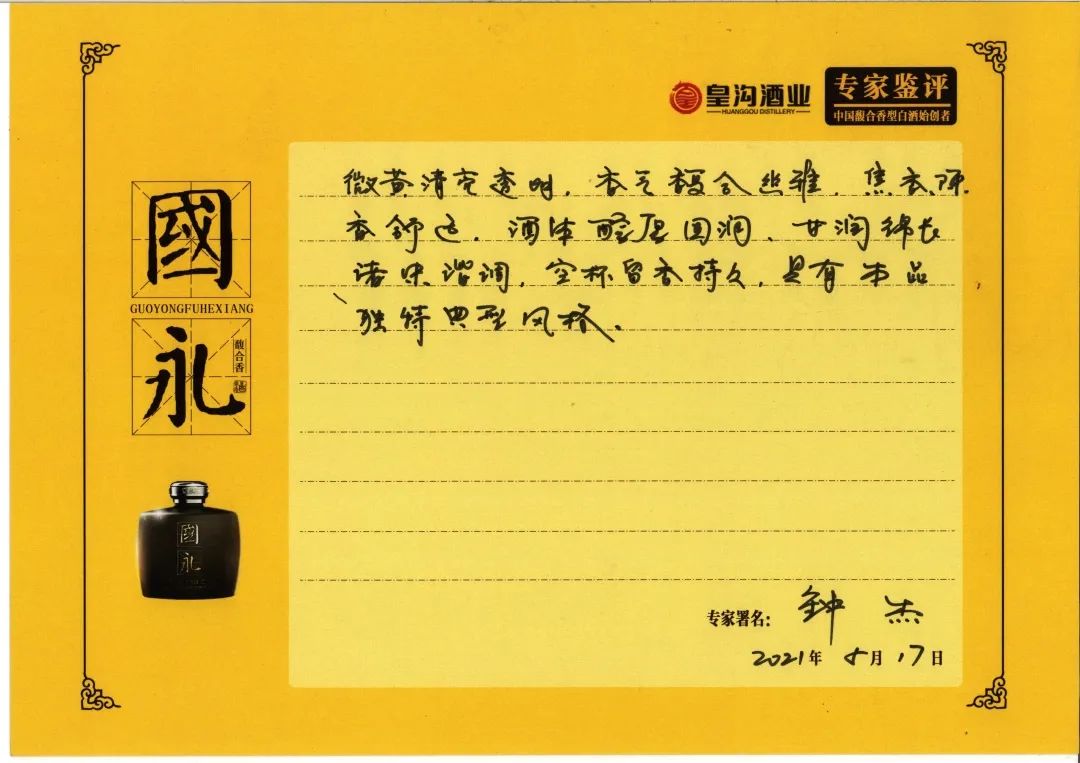 皇沟酒业
HUANGGOU DISTILLERY
专家鉴评
中国馥合香型白酒始创者
國
GUOYONGFUHEXIANG
永
馥合香
國
永
微黄清亮透明，香气馥合幽雅，焦衣陈
香舒适，酒体醇厚圆润、甘润绵长
诸味谐调，空杯留香持久，具有本品
独特典型风格。
专家署名：钟杰
2021年5月17日